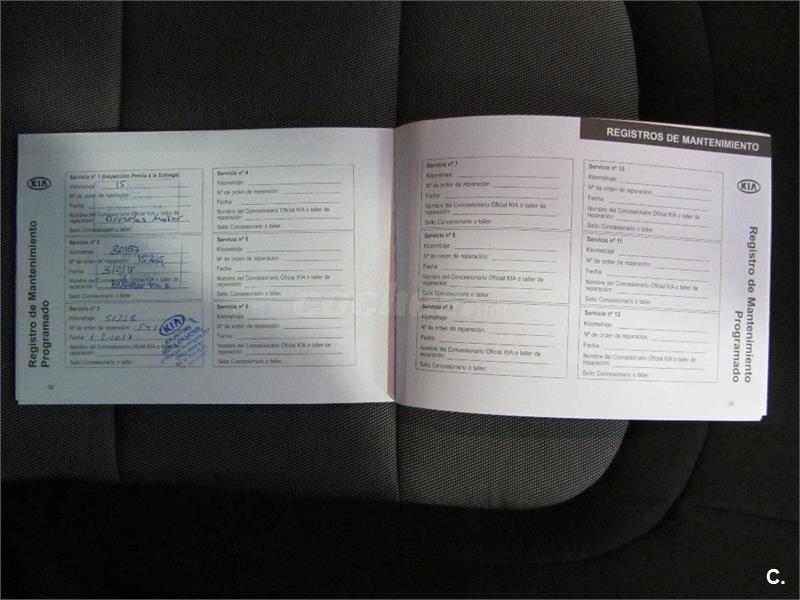 REGISTROS DE MANTENIMIENTO
KIA
Registro de Mantenimiento
Programado
Servicio nº 1 (Inspección Previa a la Entrega)
Kilometraje: 15
Nº de orden de reparación:
Fecha:
Nombre del Concesionario Oficial KIA o taller de
reparación: Bruselas Motor
Sello Concesionario o taller:
Servicio nº 2
Kilometraje:
Nº de orden de reparación:
Fecha: 3/2/15
Sello Concesionario o taller:
Servicio nº 3
Kilometraje:
Nº de orden de reparación:
Fecha: 1-2-2017
Nombre del Concesionario Oficial KIA o taller de
reparación:
Sello Concesionario o taller:
KIA
38
Servicio nº 4
Kilometraje:
Nº de orden de reparación:
Fecha:
Nombre del Concesionario Oficial KIA o taller de
reparación:
Sello Concesionario o taller:
Servicio nº 5
Kilometraje:
Nº de orden de reparación:
Fecha:
Nombre del Concesionario Oficial KIA o taller de
reparación:
Sello Concesionario o taller:
Servicio nº 6
Kilometraje:
Nº de orden de reparación:
Fecha:
Nombre del Concesionario Oficial KIA o taller de
reparación:
Sello Concesionario o taller:
Servicio nº 7
Kilometraje:
Nº de orden de reparación:
Fecha:
Nombre del Concesionario Oficial KIA o taller de
reparación:
Sello Concesionario o taller:
Servicio nº 8
Kilometraje:
Nº de orden de reparación:
Fecha:
Nombre del Concesionario Oficial KIA o taller de
reparación:
Sello Concesionario o taller:
Servicio nº 9
Kilometraje:
Nº de orden de reparación:
Fecha:
Nombre del Concesionario Oficial KIA o taller de
reparación:
Sello Concesionario o taller:
Servicio nº 10
Kilometraje:
Nº de orden de reparación:
Fecha:
Nombre del Concesionario Oficial KIA o taller de
reparación:
Sello Concesionario o taller:
Servicio nº 11
Kilometraje:
Nº de orden de reparación:
Fecha:
Nombre del Concesionario Oficial KIA o taller de
reparación:
Sello Concesionario o taller:
Servicio nº 12
Kilometraje:
Nº de orden de reparación:
Fecha:
Nombre del Concesionario Oficial KIA o taller de
reparación:
Sello Concesionario o taller:
KIA
Registro de Mantenimiento
Programado
39
C.